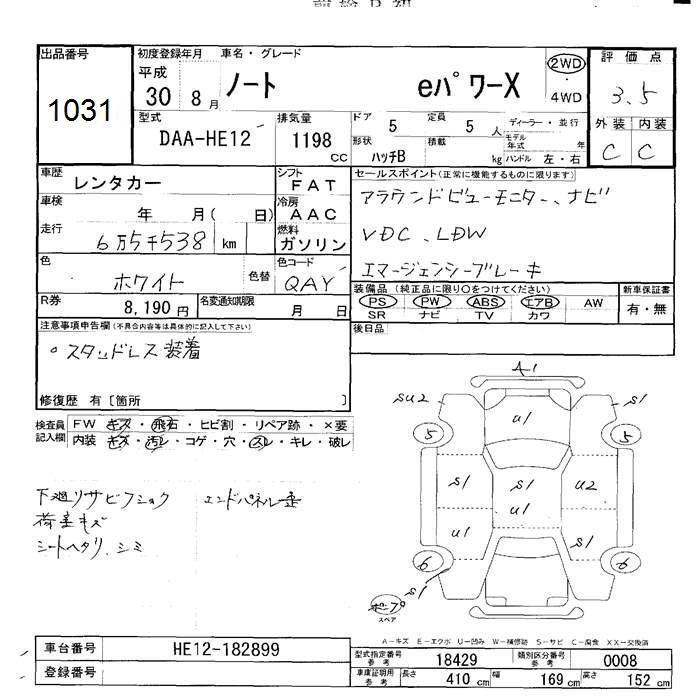 出品番号
1031
初度登録年月 車名・グレード
平成
30 8月 ノート eパワーX
2WD
4WD
評価点
3.5
外装 内装
C C
型式
DAA-HE12
排気量
1198
CC
ドア 5 定員 5人 ディーラー・並行
形状 ハッチB 積載 kg モデル年式 年
ハンドル 左・右
車歴 レンタカー
シフト FAT
車検 年 月( 日)
冷房 AAC
走行 6万5千538 km
燃料 ガソリン
色 ホワイト 色替
色コード QAY
R券 8,190円 名変通知期限 月 日
セールスポイント(正常に機能するものに限ります)
アラウンドビューモニター、ナビ
VDC、LDW
エマージェンシーブレーキ
装備品(純正品に限り○をつけてください) 新車保証書
PS PW ABS エアB AW 有・無
SR ナビ TV カワ
後日品
注意事項申告欄(不具合内容等は具体的に記入して下さい)
○スタッドレス装着
修復歴 有[箇所 ]
検査員記入欄
FW キズ・飛石・ヒビ割・リペア跡・×要
内装 キズ・汚レ・コゲ・穴・スレ・キレ・破レ
下廻リサビフショク エンドパネル歪
荷室キズ
シートヘタリ、シミ
A1
SU2 S1
U1
5 5
S1 S1 U2
U1 U1
S1
6 6
S1
スペア
A-キズ E-エクボ U-凹み W-補修跡 S-サビ C-腐食 XX-交換済
車台番号 HE12-182899
登録番号
型式指定番号 参考 18429 類別区分番号 参考 0008
車庫証明用 参考 長さ 410 cm 幅 169 cm 高さ 152 cm